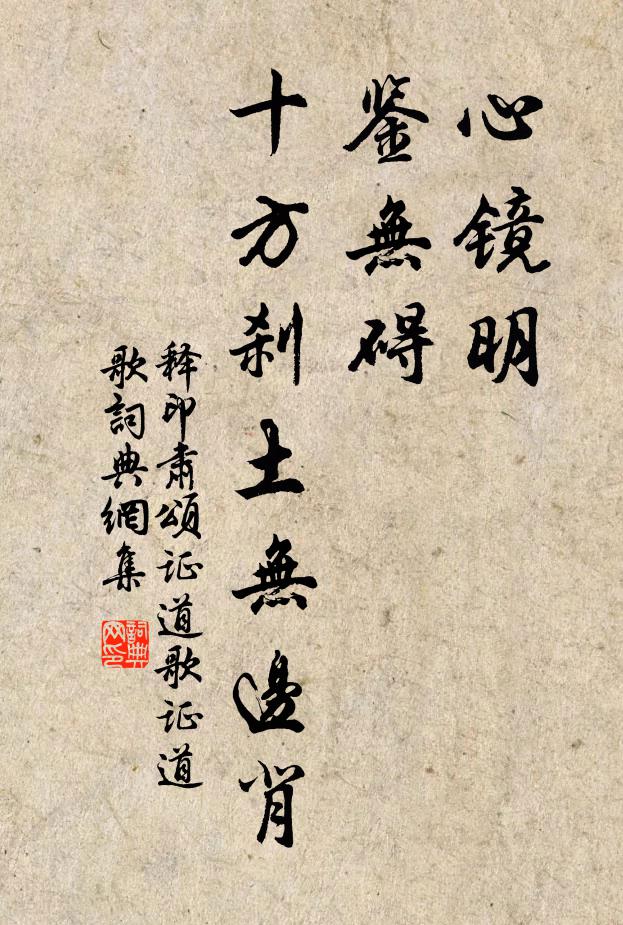 心鏡明
鉴無碍
十方刹土無邊背
释印肃頌证道歌证道
歌詞典網集
詞典
网印